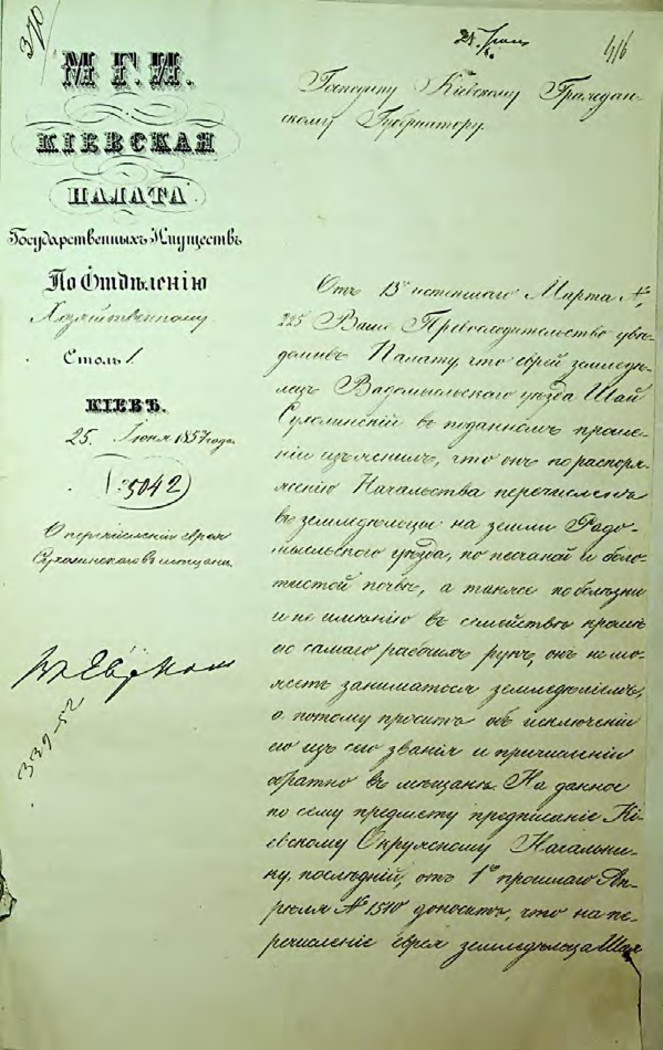 370
416
М. Г. И.
КІЕВСКАЯ
ПАЛАТА
Государственныхъ Имуществъ
По Отдѣленію
Хозяйственному
Столъ 1.
КІЕВЪ.
25. Іюня 1857 года
5042
О перечисленіи еврея
Сухолинскаго въ мещане.
339-52
Господину Кіевскому Граждан-
скому Губернатору.
Отъ 13 истекшаго Марта №
225 Ваше Превосходительство увѣ-
домивъ Палату, что еврей земледѣ-
лецъ Радомысльскаго уѣзда Шай
Сухолинскій въ поданномъ проше-
ніи изъяснилъ, что онъ по распоря-
женію Начальства перечисленъ
въ земледѣльцы на земли Радо-
мысльскаго уѣзда, по песчаной и боло-
тистой почвѣ, а также по болѣзни
и не имѣнію въ семействѣ кромѣ
его самаго рабочихъ рукъ, онъ не мо-
жетъ заниматься земледѣліемъ,
а потому проситъ объ исключеніи
его изъ сего званія и причисленіи
обратно въ мѣщане. На данное
по сему предмету предписаніе Кі-
евскому Окружному Начальни-
ку, послѣдній, отъ 1го прошлаго Ап-
рѣля № 1510 доноситъ, что на пе-
речисленіе еврея земледѣльца Шая